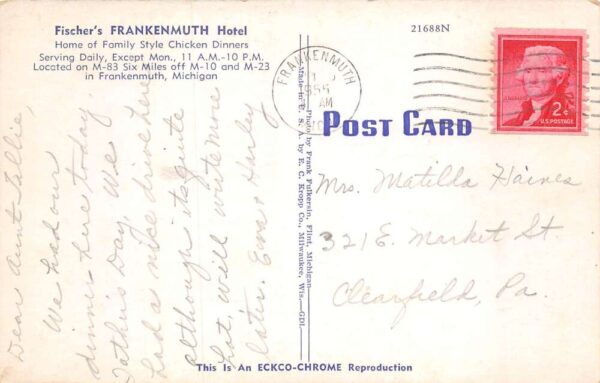 Fischer's FRANKENMUTH Hotel
Home of Family Style Chicken Dinners
Serving Daily, Except Mon., 11 A.M.-10 P.M.
Located on M-83 Six Miles off M-10 and M-23
in Frankenmuth, Michigan
21688N
FRANKENMUTH
1955
AM
JEFFERSON
2¢
U.S. POSTAGE
POST CARD
Photo by Frank Fulkersin, Flint, Michigan
Made in U. S. A. by E. C. Kropp Co., Milwaukee, Wis.—GDI.
Dear Aunt Lillie
We had our
dinner here today,
Father's Day. We
had a nice drive here
although its quite
hot, will write more
later. Eva & Harley
Mrs. Matilda Haines
321 E. Market St.
Clearfield, Pa.
This Is An ECKCO-CHROME Reproduction